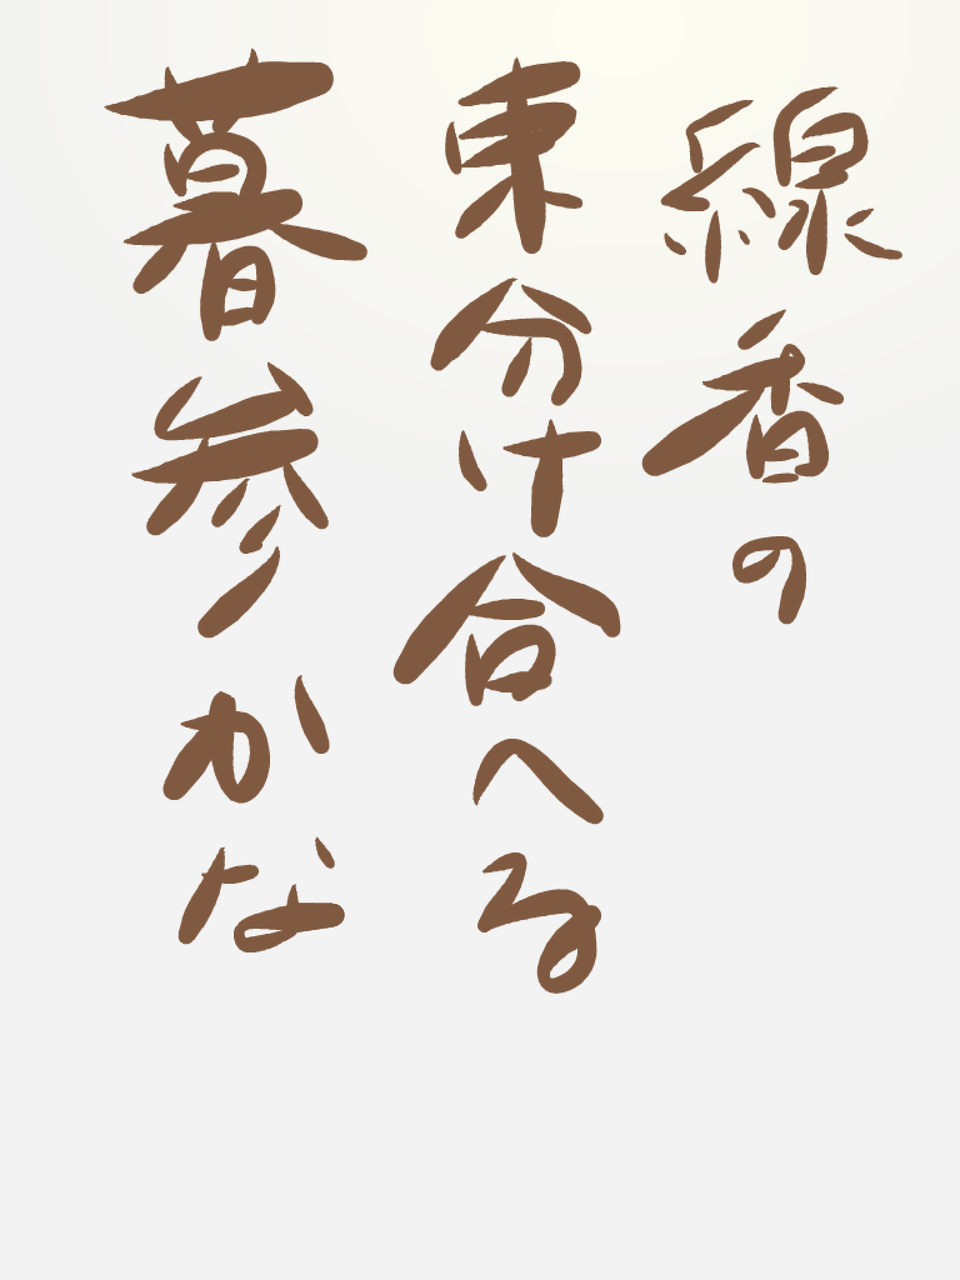 線香の
東分け合へる
暮参かな